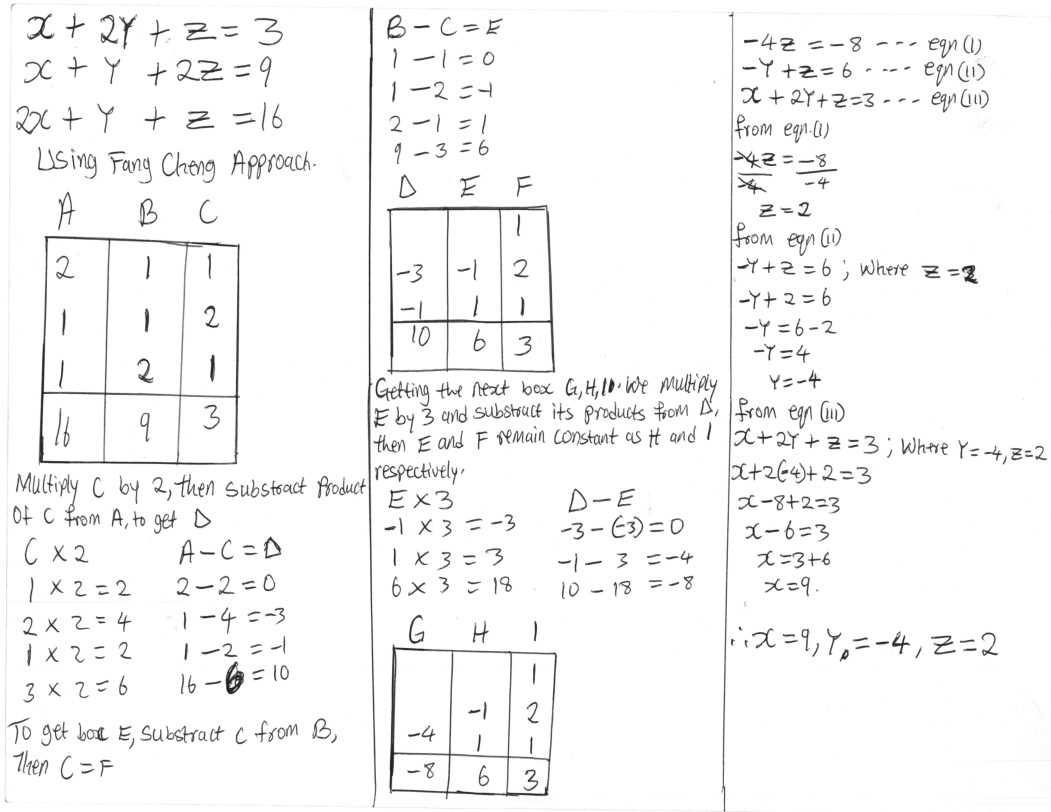 x + 2Y + z = 3
x + Y + 2z = 9
2x + Y + z = 16
Using Fang Cheng Approach.
A B C
2 1 1
1 1 2
1 2 1
16 9 3
Multiply C by 2, then substract Product
Of C from A, to get D
C x 2 A - C = D
1 x 2 = 2 2 - 2 = 0
2 x 2 = 4 1 - 4 = -3
1 x 2 = 2 1 - 2 = -1
3 x 2 = 6 16 - 6 = 10
To get box E, substract C from B,
Then C = F
B - C = E
1 - 1 = 0
1 - 2 = -1
2 - 1 = 1
9 - 3 = 6
D E F
1
-3 -1 2
-1 1 1
10 6 3
Getting the next box G, H, I. We multiply
E by 3 and substract its products from D,
then E and F remain constant as H and I
respectively.
E x 3 D - E
-1 x 3 = -3 -3 - (-3) = 0
1 x 3 = 3 -1 - 3 = -4
6 x 3 = 18 10 - 18 = -8
G H I
1
-1 2
-4 1 1
-8 6 3
-4z = -8 --- eqn (i)
-Y + z = 6 ---- eqn (ii)
x + 2Y + z = 3 --- eqn (iii)
from eqn. (i)
-4z = -8
-4 -4
z = 2
from eqn (ii)
-Y + z = 6 ; Where z = 2
-Y + 2 = 6
-Y = 6 - 2
-Y = 4
Y = -4
from eqn (iii)
x + 2Y + z = 3 ; Where Y = -4, z = 2
x + 2(-4) + 2 = 3
x - 8 + 2 = 3
x - 6 = 3
x = 3 + 6
x = 9.
∴ x = 9, Y = -4, z = 2